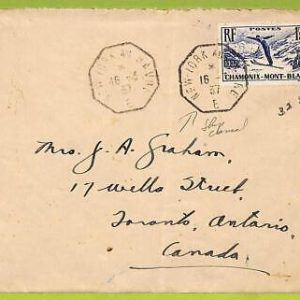 NEW-YORK AU HAVRE
16 -4
37
E
NEW-YORK AU HAVRE
16
37
E
RF POSTES
CHAMONIX-MONT-BLANC
Ship
cancel
Mrs. J. A. Graham,
17 Wells Street,
Toronto, Ontario,
Canada.